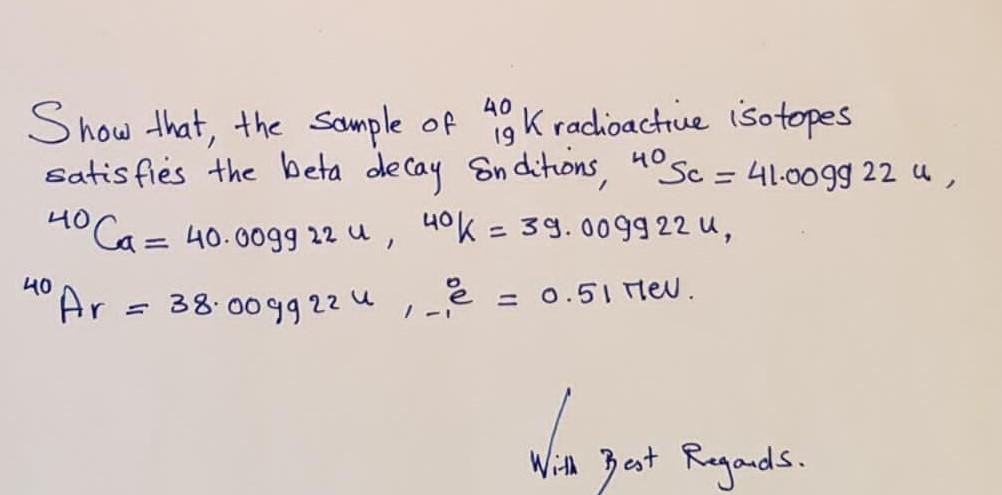 Show that, the sample of ⁴⁰₁₉K radioactive isotopes
satisfies the beta decay Conditions, ⁴⁰Sc = 41.009922 u,
⁴⁰Ca = 40.009922 u, ⁴⁰K = 39.009922 u,
⁴⁰Ar = 38.009922 u, ₋₁⁰e = 0.51 MeV.
With Best Regards.